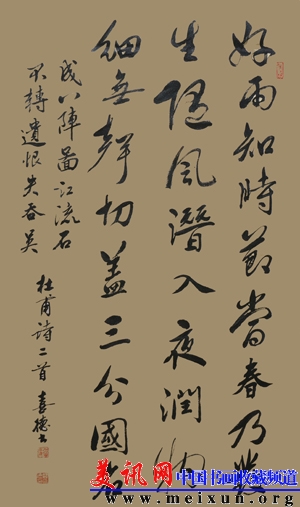 好雨知時節當春乃發
生隨風潛入夜潤物
細無聲功蓋三分國名
成八陣圖江流石
不轉遺恨失吞吳
杜甫詩二首 喜德书
美讯网 中国书画收藏频道
www.meixun.org